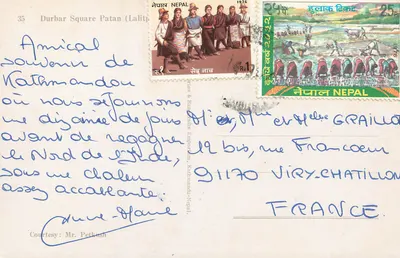 35 Durbar Square Patan (Lalit
Amical
souvenir de
Kathmandou
où nous séjournons
une dizaine de jours
avant de regagner
le Nord de l'Inde,
sous une chaleur
assez accablante.
Anne-Marie
Courtesy: Mr. Pathan
नेपाल NEPAL 1973
हुलाक टिकट 25
नेपाल NEPAL
Mr, Mme et Melle GRAILLO
12 bis, rue Francoeur
91170 VIRY-CHATILLON
FRANCE